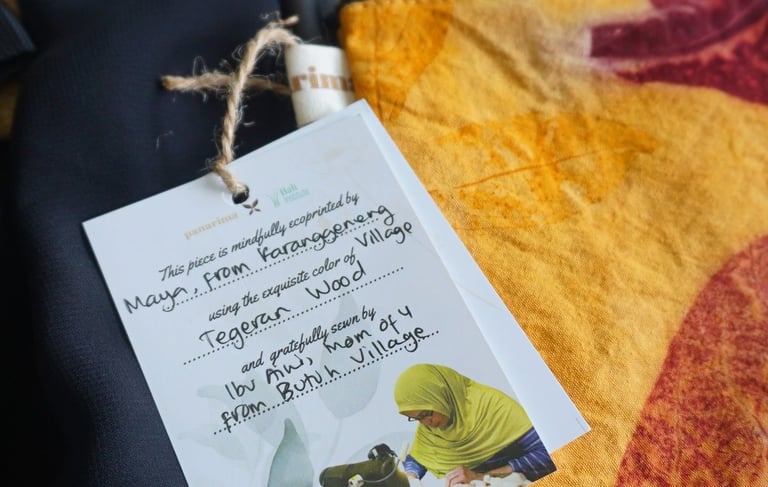 rima
panarima
Bali
Institute
This piece is mindfully ecoprinted by
Maya, from Karanggeneng
Village
using the exquisite color of
Tegeran Wood
and gratefully sewn by
Ibu Aiwi, Mom of 4
from Butuh Village